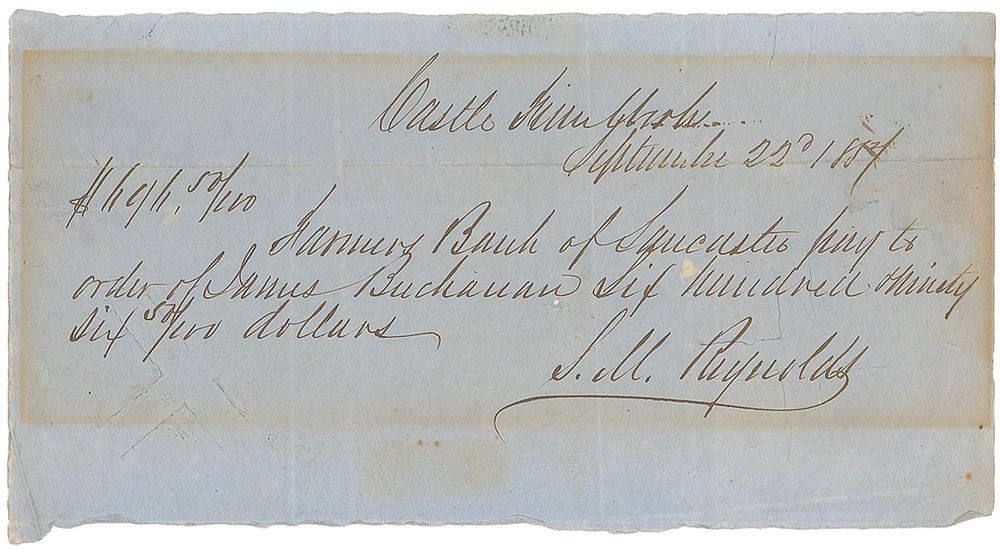 Castle Finn
September 22d 1854
$696.50/100
Farmers Bank of Lancaster pay to
order of James Buchanan Six hundred & ninety
six 50/100 dollars
S. M. Reynolds